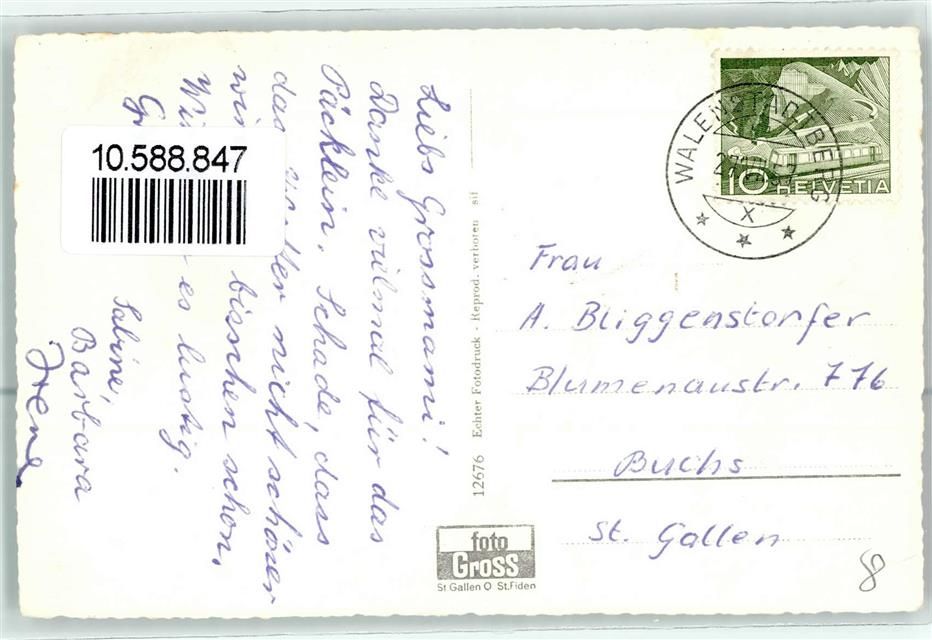 Liebs Grossmami!
Danke vielmal für das
Päcklein. Schade, dass
das Wetter nicht schöner
bisschen schon,
es lustig.
Sabine,
Barbara
Irene
10.588.847
12676 Echter Fotodruck - Reprod. verboten sif
foto
Gross
St.Gallen O St.Fiden
WALENSTADTBERG
X
10 HELVETIA
Frau
A. Bliggenstorfer
Blumenaustr. 776
Buchs
St. Gallen
8